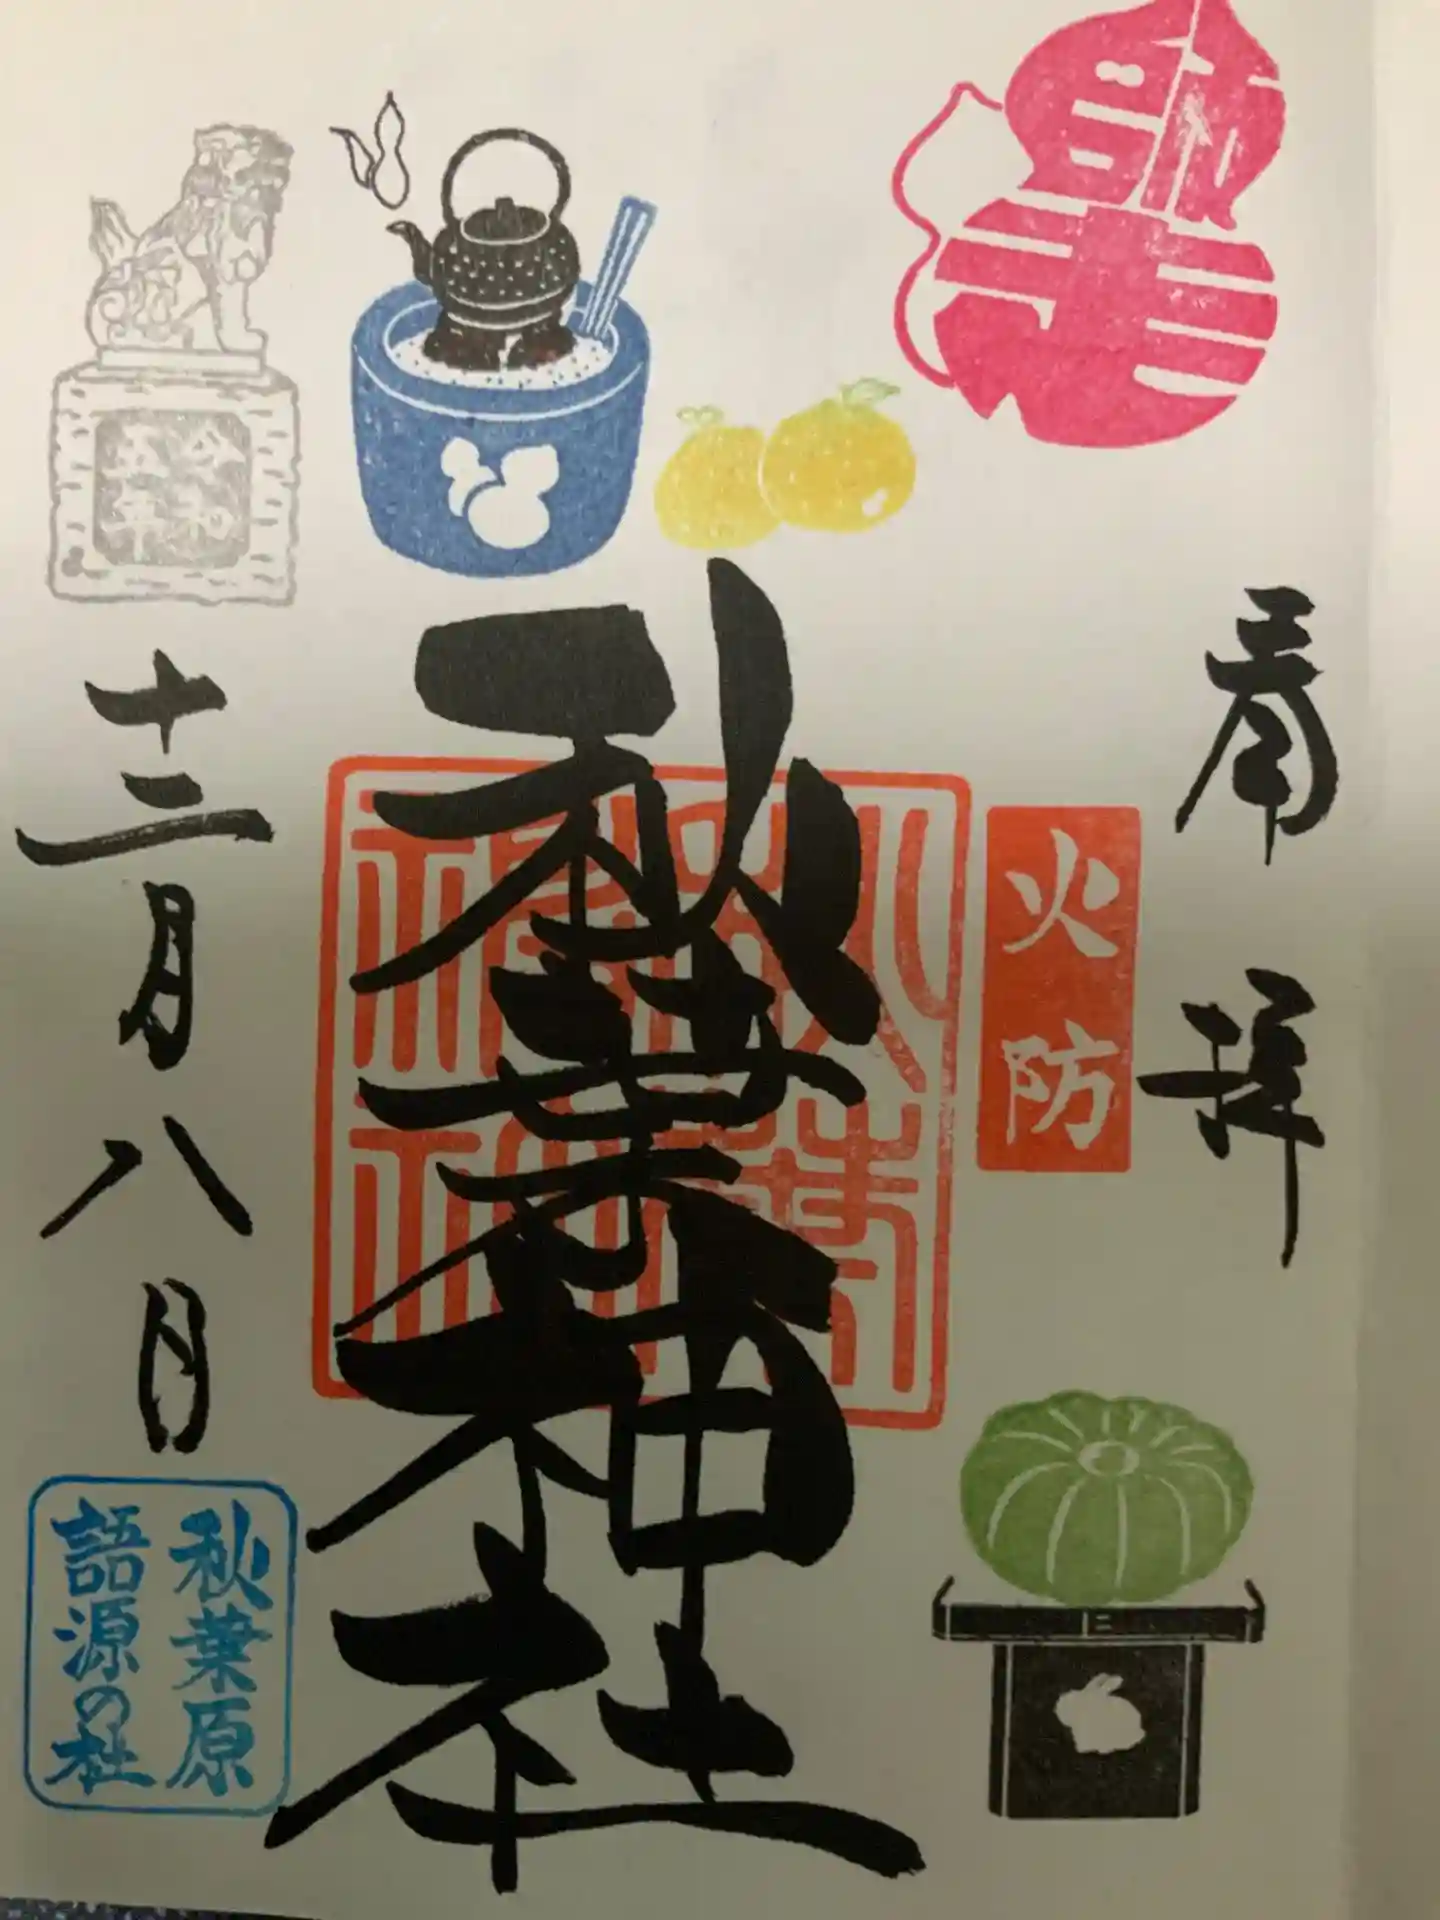 奉拝
火防
秋葉神社
令和
五年
十二月八日
秋葉原
語源の社